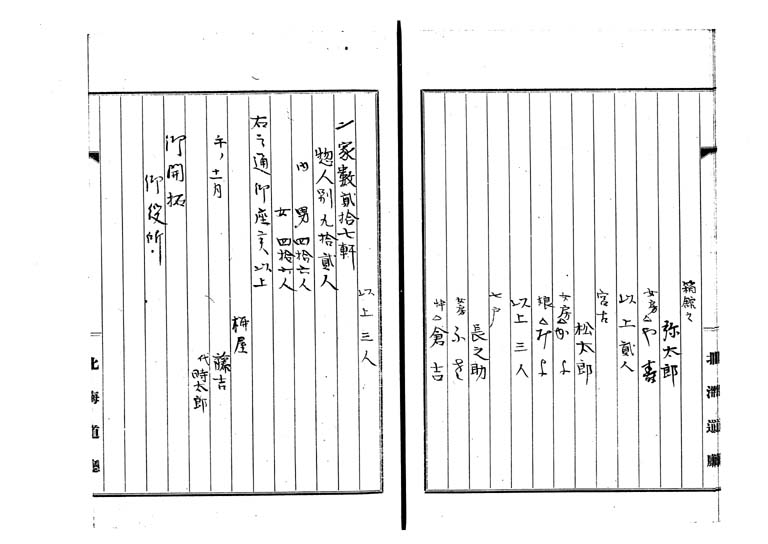 箱館ゟ
弥太郎
女房△や寿
以上貳人
宮古
松太郎
女房△かよ
娘△みよ
以上三人
七戸
長之助
女房ふき
忰△倉吉
北海道廳
以上三人
〆家数貳拾七軒
惣人別九拾貳人
内 男四拾六人
女四拾六人
右之通御座候以上
午ノ十一月
枡屋
藤吉
代時太郎
御開拓
御役所
北海道廳